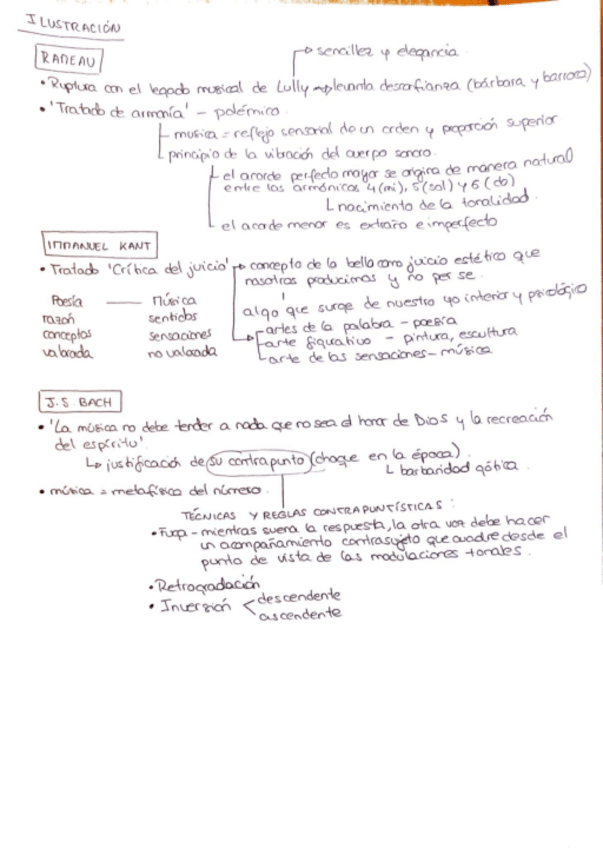 ILUSTRACIÓN
RAMEAU
sencillez y elegancia.
• Ruptura con el legado musical de Lully → levanta desconfianza (bárbara y barroca)
• 'Tratado de armonía' - polémico.
musica = reflejo sensorial de un orden y proporción superior
principio de la vibración del cuerpo sonoro.
el acorde perfecto mayor se origina de manera natural
entre los armónicos 4 (mi), 5 (sol) y 6 (do)
nacimiento de la tonalidad.
el acorde menor es extraño e imperfecto
IMMANUEL KANT
• Tratado 'Crítica del juicio' → concepto de la bella como juicio estético que
nosotros producimos y no per se.
algo que surge de nuestro yo interior y psicológico
Poesía — Música
razón sentidos
conceptos sensaciones
valorada no valorada
artes de la palabra - poesía
arte figurativo - pintura, escultura
arte de las sensaciones - música
J.S BACH
• 'La música no debe tender a nada que no sea el honor de Dios y la recreación
del espíritu'.
↳ justificación de su contrapunto (choque en la época).
barbaridad gótica.
• música = metafísica del número.
TÉCNICAS Y REGLAS CONTRAPUNTÍSTICAS:
• Fuga - mientras suena la respuesta, la otra voz debe hacer
un acompañamiento contrasujeto que cuadre desde el
punto de vista de las modulaciones tonales.
• Retrogradación
• Inversión < descendente
ascendente